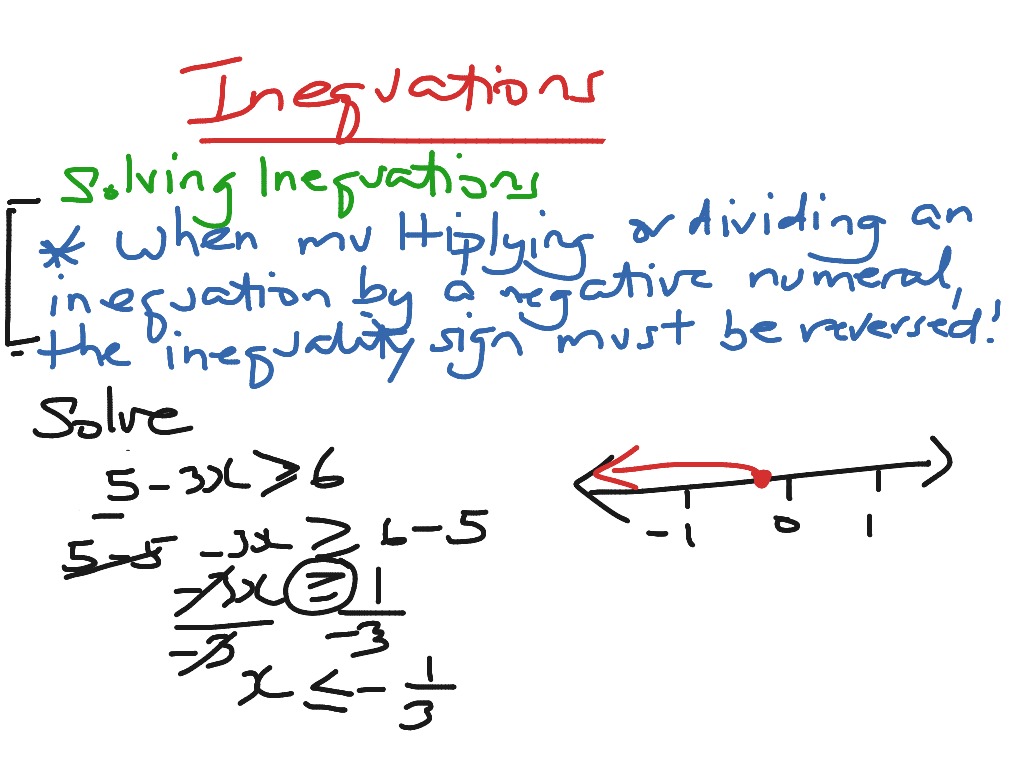 Inequations
Solving Inequations
* When multiplying or dividing an
inequation by a negative numeral,
the inequality sign must be reversed!
Solve
5 - 3x > 6
5 - 5 - 3x ≥ 6 - 5
-3x ≥ 1
-3 -3
x ≤ - 1/3
-1 0 1